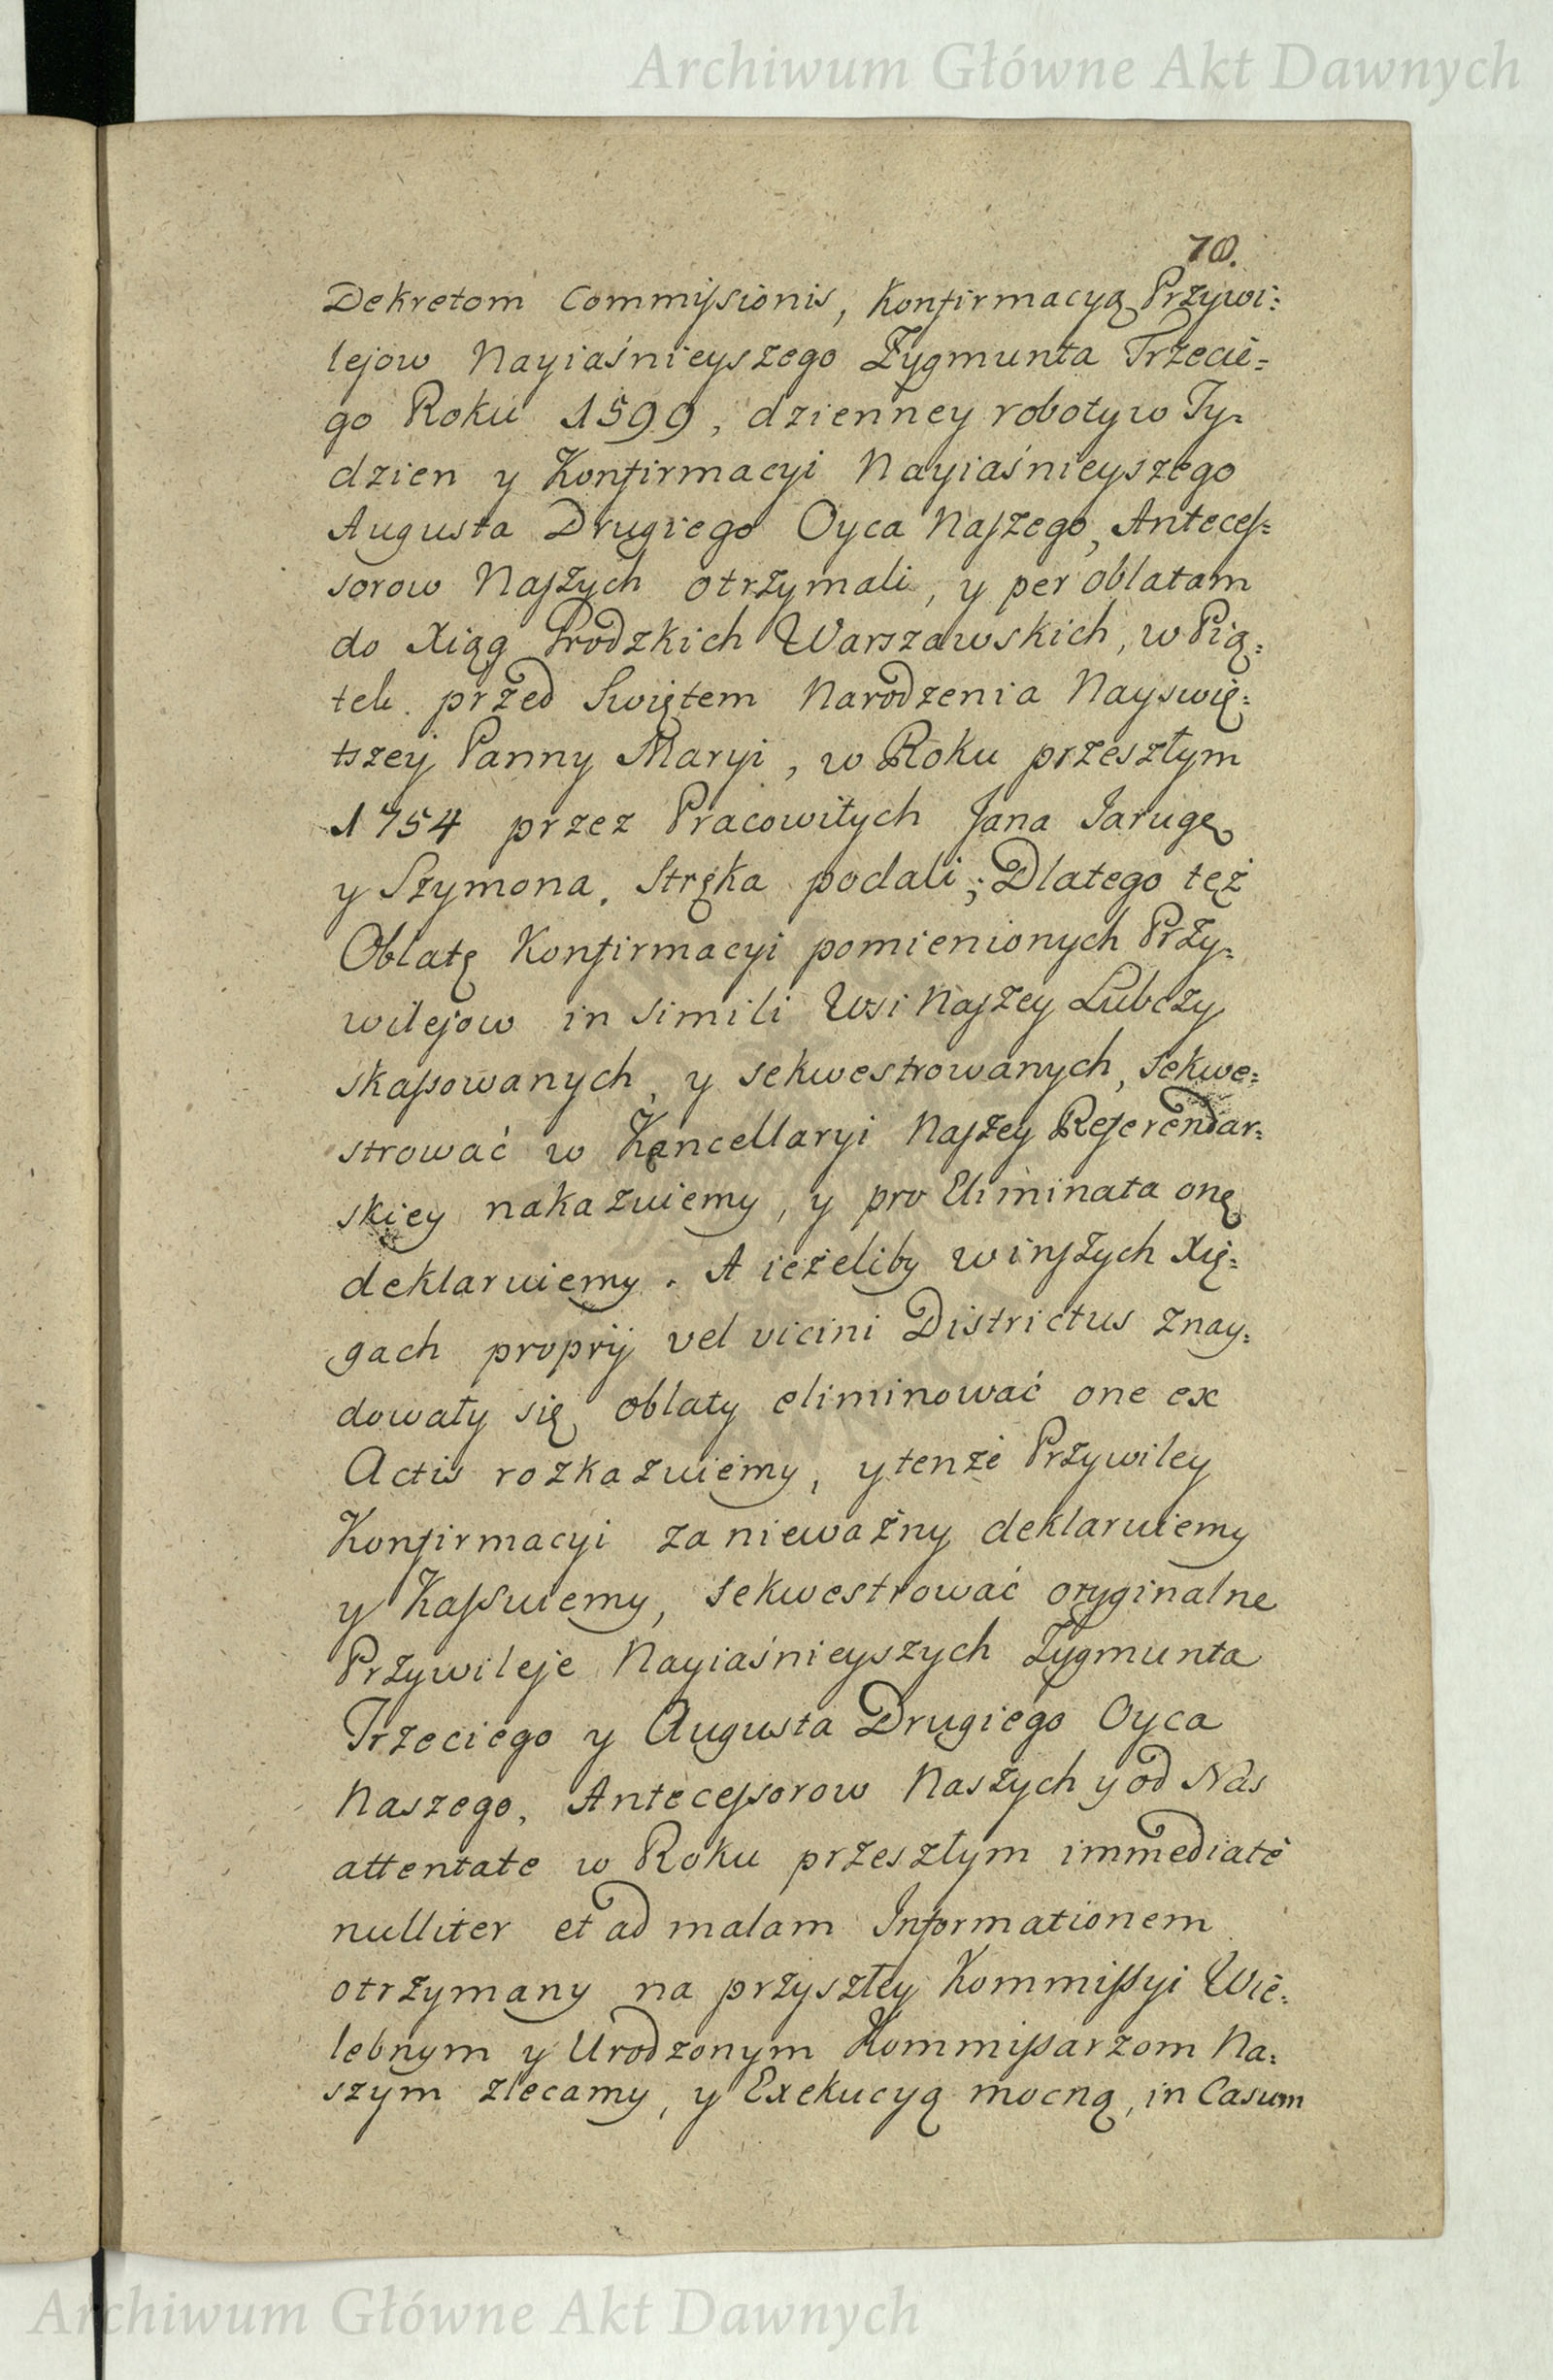 Archiwum Główne Akt Dawnych
70.
Dekretom Commissionis, Konfirmacyą Przywi:
lejow Nayiaśnieyszego Zygmunta Trzecie=
go Roku 1599, dzienney roboty w Ty=
dzien y Konfirmacyi Nayiaśnieyszego
Augusta Drugiego Oyca Naszego, Anteces=
sorow Naszych otrzymali, y per oblatam
do Xiąg Grodzkich Warszawskich, w Pią:
tek przed Swiętem Narodzenia Nayswię:
tszey Panny Maryi, w Roku przeszłym
1754 przez Pracowitych Jana Jarugę
y Szymona Stręka podali; Dlatego też
Oblatę Konfirmacyi pomienionych Przy=
wilejow in simili Wsi Naszey Lubczy
skassowanych, y sekwestrowanych, sekwe:
strować w Kancellaryi Naszey Referendar:
skiey nakazuiemy, y pro Eliminata onę
deklaruiemy. A ieżeliby w inszych Xię:
gach proprij vel vicini Districtus znay:
dowały się oblaty eliminować one ex
Actis rozkazuiemy, y tenże Przywiley
Konfirmacyi za nieważny deklaruiemy
y Kassuiemy, sekwestrować oryginalne
Przywileje Nayiaśnieyszych Zygmunta
Trzeciego y Augusta Drugiego Oyca
Naszego, Antecessorow Naszych y od Nas
attentate w Roku przeszłym immediatè
nulliter et ad malam Informationem
otrzymany na przyszłey Kommissyi Wie:
lebnym y Urodzonym Kommissarzom Na:
szym zlecamy, y Exekucyą mocną, in Casum
Archiwum Główne Akt Dawnych